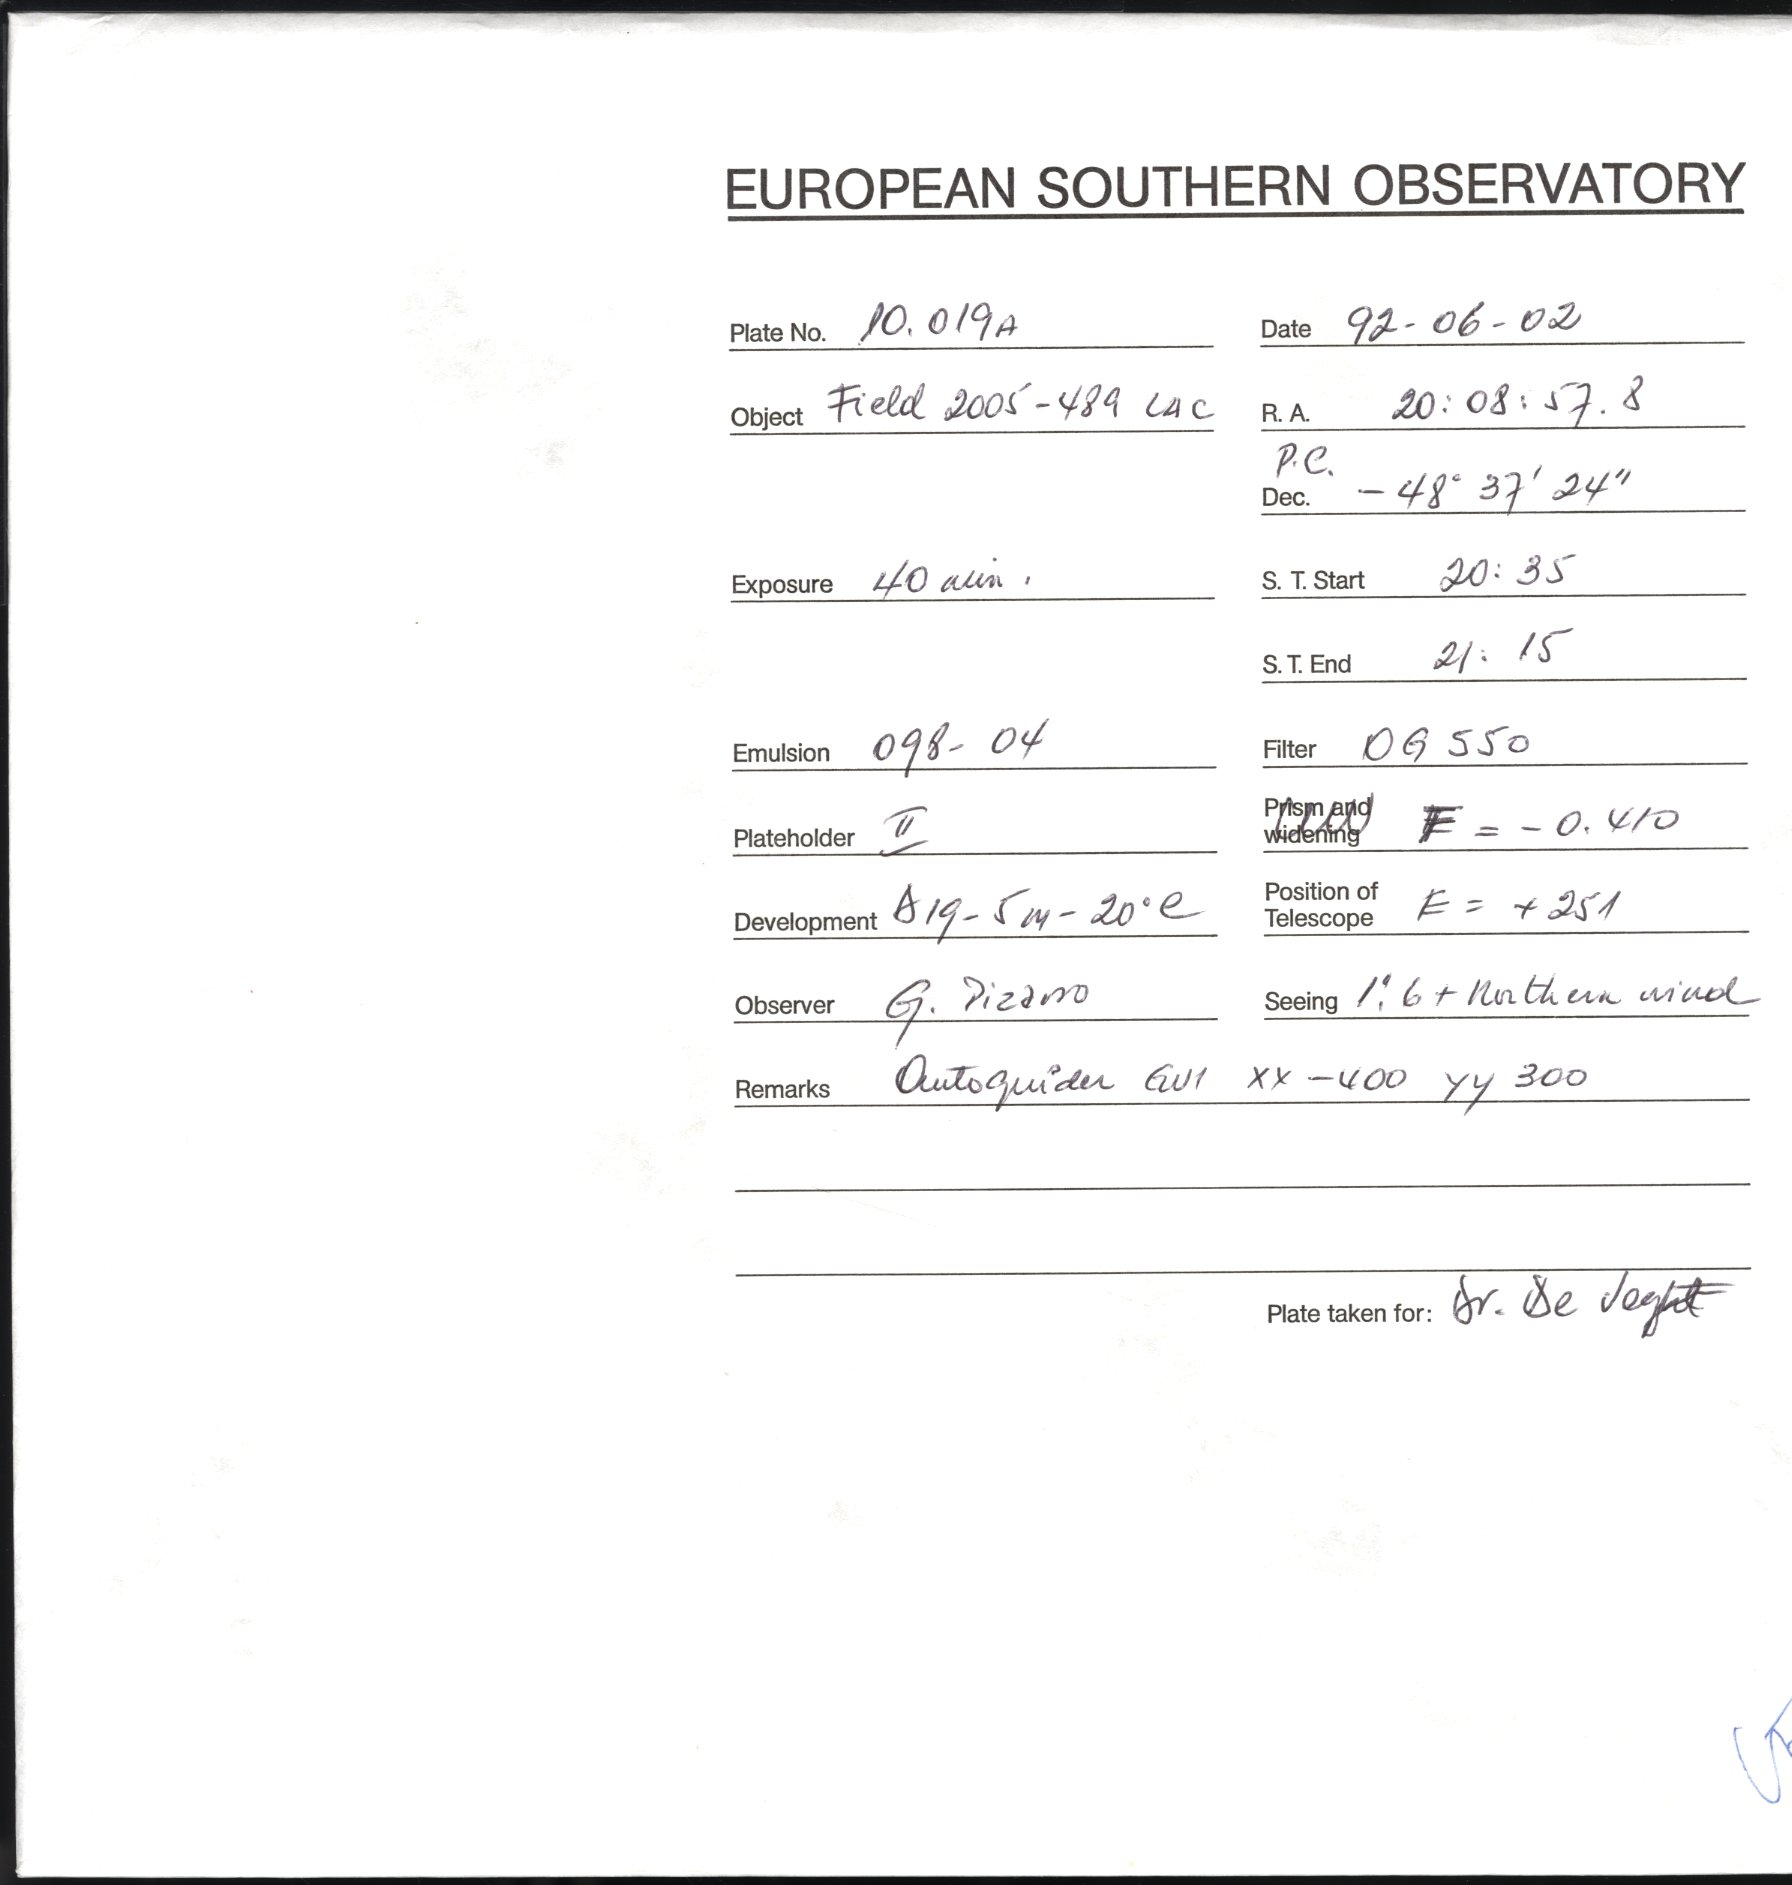 EUROPEAN SOUTHERN OBSERVATORY
Plate No. 10.019A Date 92-06-02
Object Field 2005-489 LAC R. A. 20:08:57.8
P.C.
Dec. -48° 37' 24"
Exposure 40 min. S. T. Start 20:35
S. T. End 21:15
Emulsion 098-04 Filter OG 550
Plateholder II Prism and widening F = -0.410
Development D19-5m-20°C Position of Telescope E = +251
Observer G. Pizarro Seeing 1".6 + Northern wind
Remarks Autoguider GV1 XX -400 YY 300
Plate taken for: Dr. De Veght